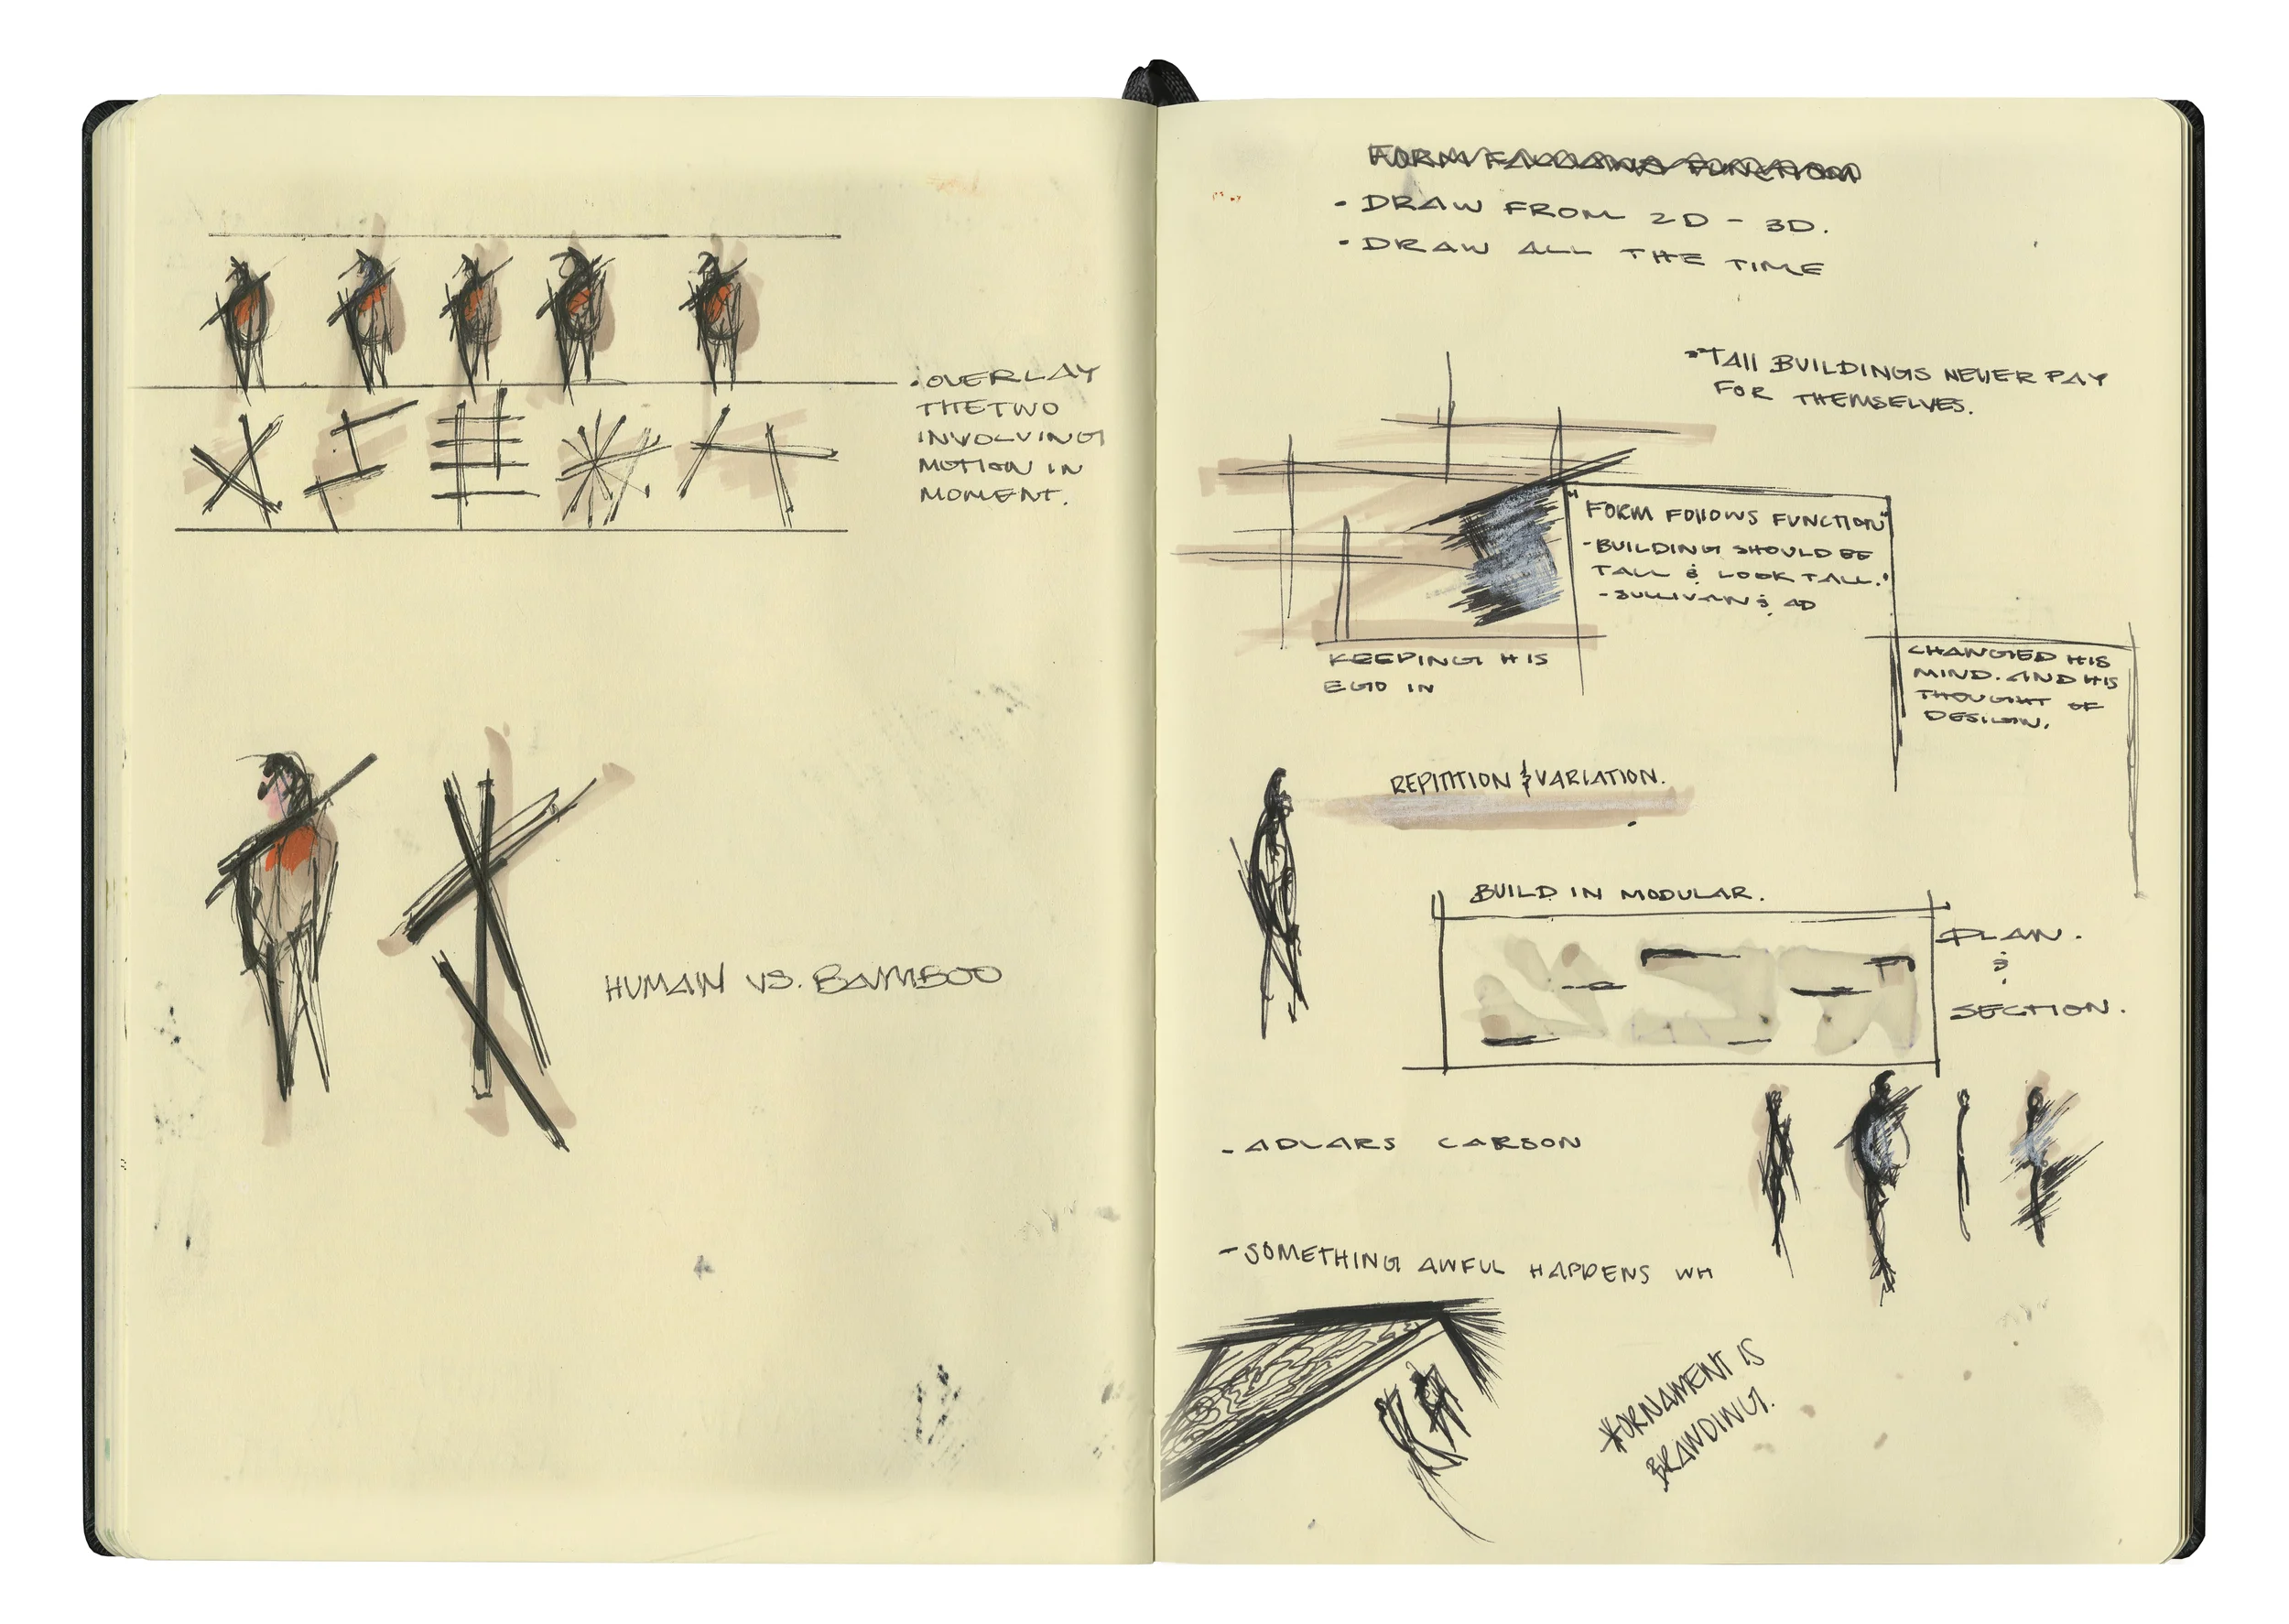 · OVERLAY
THE TWO
INVOLVING
MOTION IN
MOMENT.
HUMAN VS. BAMBOO
FORM FOLLOWING FUNCTION
· DRAW FROM 2D - 3D.
· DRAW ALL THE TIME
"TALL BUILDINGS NEVER PAY
FOR THEMSELVES.
"FORM FOLLOWS FUNCTION"
- BUILDING SHOULD BE
TALL & LOOK TALL."
- SULLIVAN & AD
KEEPING HIS
EGO IN
CHANGED HIS
MIND. AND HIS
THOUGHT OF
DESIGN.
REPITITION & VARIATION.
BUILD IN MODULAR.
PLAN.
&
SECTION.
- ADLARS CARSON
- SOMETHING AWFUL HAPPENS WH
*ORNAMENT IS
BRANDING.